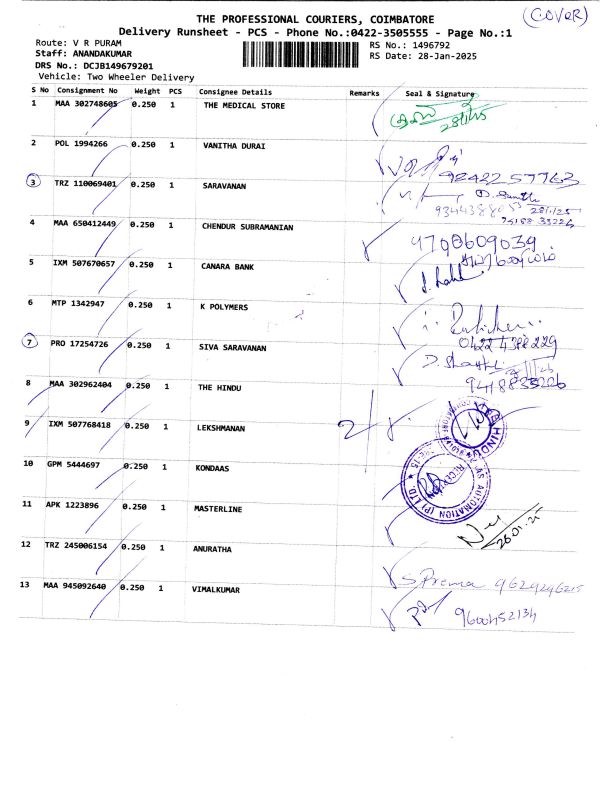 (COVER)
THE PROFESSIONAL COURIERS, COIMBATORE
Delivery Runsheet - PCS - Phone No.:0422-3505555 - Page No.:1
Route: V R PURAM RS No.: 1496792
Staff: ANANDAKUMAR RS Date: 28-Jan-2025
DRS No.: DCJB149679201
Vehicle: Two Wheeler Delivery
S No Consignment No Weight PCS Consignee Details Remarks Seal & Signature
1 MAA 302748605 0.250 1 THE MEDICAL STORE
28/1/25
2 POL 1994266 0.250 1 VANITHA DURAI
92422 57763
3 TRZ 110069401 0.250 1 SARAVANAN
28/1/25
4 MAA 650412449 0.250 1 CHENDUR SUBRAMANIAN
9790609039
5 IXM 507670657 0.250 1 CANARA BANK
6 MTP 1342947 0.250 1 K POLYMERS
0422 4388229
7 PRO 17254726 0.250 1 SIVA SARAVANAN
9418833226
8 MAA 302962404 0.250 1 THE HINDU
HINDU
9 IXM 507768418 0.250 1 LEKSHMANAN
10 GPM 5444697 0.250 1 KONDAAS
AUTOMATION (P) LTD
RECEPTION
11 APK 1223896 0.250 1 MASTERLINE
28.01.25
12 TRZ 245006154 0.250 1 ANURATHA
S Prema 9629296215
13 MAA 945092640 0.250 1 VIMALKUMAR
9600452134